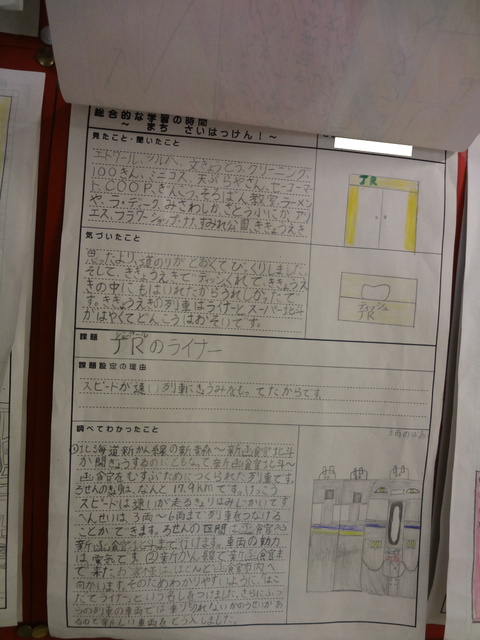 総合的な学習の時間
～ まち さいはっけん！～
見たこと・聞いたこと
クリーニング、
100きん、ミニコス、天ぷらやさん、セーコーマ
ート、COOP、ぎんこう、そろばん教室、ラーメン
や、ラ・ディーク、みさわしか、さとう小にか、アリ
エス、フラワーショップ・ナナ、すみれ公園、ききょうえき
JR
気づいたこと
思ったより、道のりがとおくてびっくりしました。
そして、ききょうえきでティッシュくれて、ききょうえ
きの中にもはいれたからうれしかったで
す。ききょうえきの列車はライナーとスーパー北斗
がはやくてどんこうはおそいです。
ティッシュ
JR
課題
JRのライナー
課題設定の理由
スピードが速い列車にきょうみをもってたからです。
調べてわかったこと
①北海道新かん線の新青森～新函館北斗
が開ぎょうするのにともなって、新函館北斗～
函館をむすぶためにつくられた列車です。
ろせんのきょりは、なんと17.9kmです。けっこう
スピードは速いが走るきょりはみじかいです。
へんせいは、3両～6両まで列車をつなげる
ことができます。ろせんの区間は函館から
新函館北斗まで行けます。車両の動力
は電気です。②新かん線で新函館まで
来た
向かいます。そのためわかりやすいように、はこ
だてライナーという名しょうをつけました。さらにふつ
うの列車の車両では乗りきれないかのうせいがあ
るので新しい車両をどう入しました。